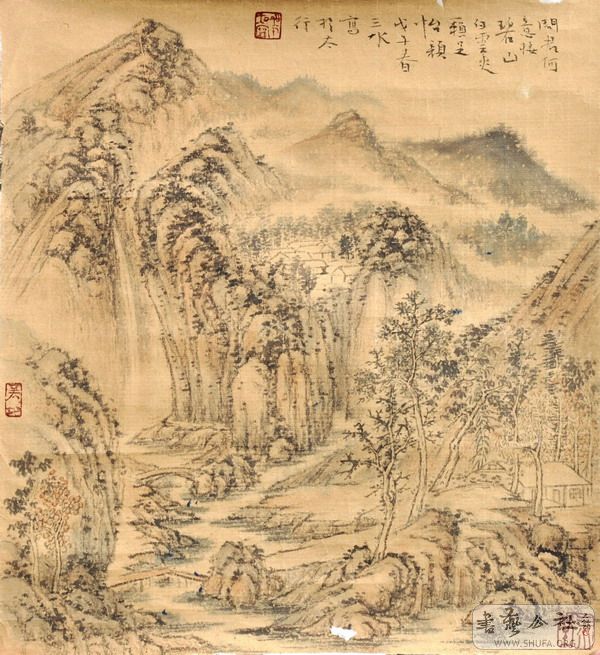 問君何
意棲
碧山
白雲
足
怡顏
戊午春
三水
寫
於太
行
書藝公社
WWW.SHUFA.ORG